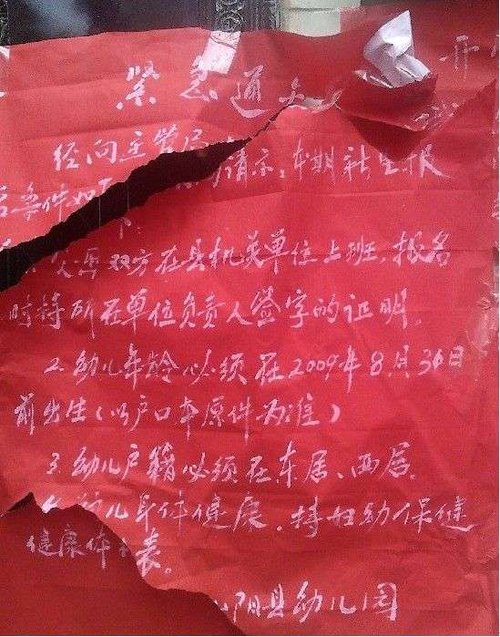 开
紧急通
经向主管局请示,本期新生报
名条件如下
父母双方在县机关单位上班,报名
时持所在单位负责人签字的证明。
2.幼儿年龄必须在2009年8月30日
前出生(以户口本原件为准)
3.幼儿户籍必须在东居、西居。
幼儿身体健康,持妇幼保健
健康体表。
阴县幼儿园